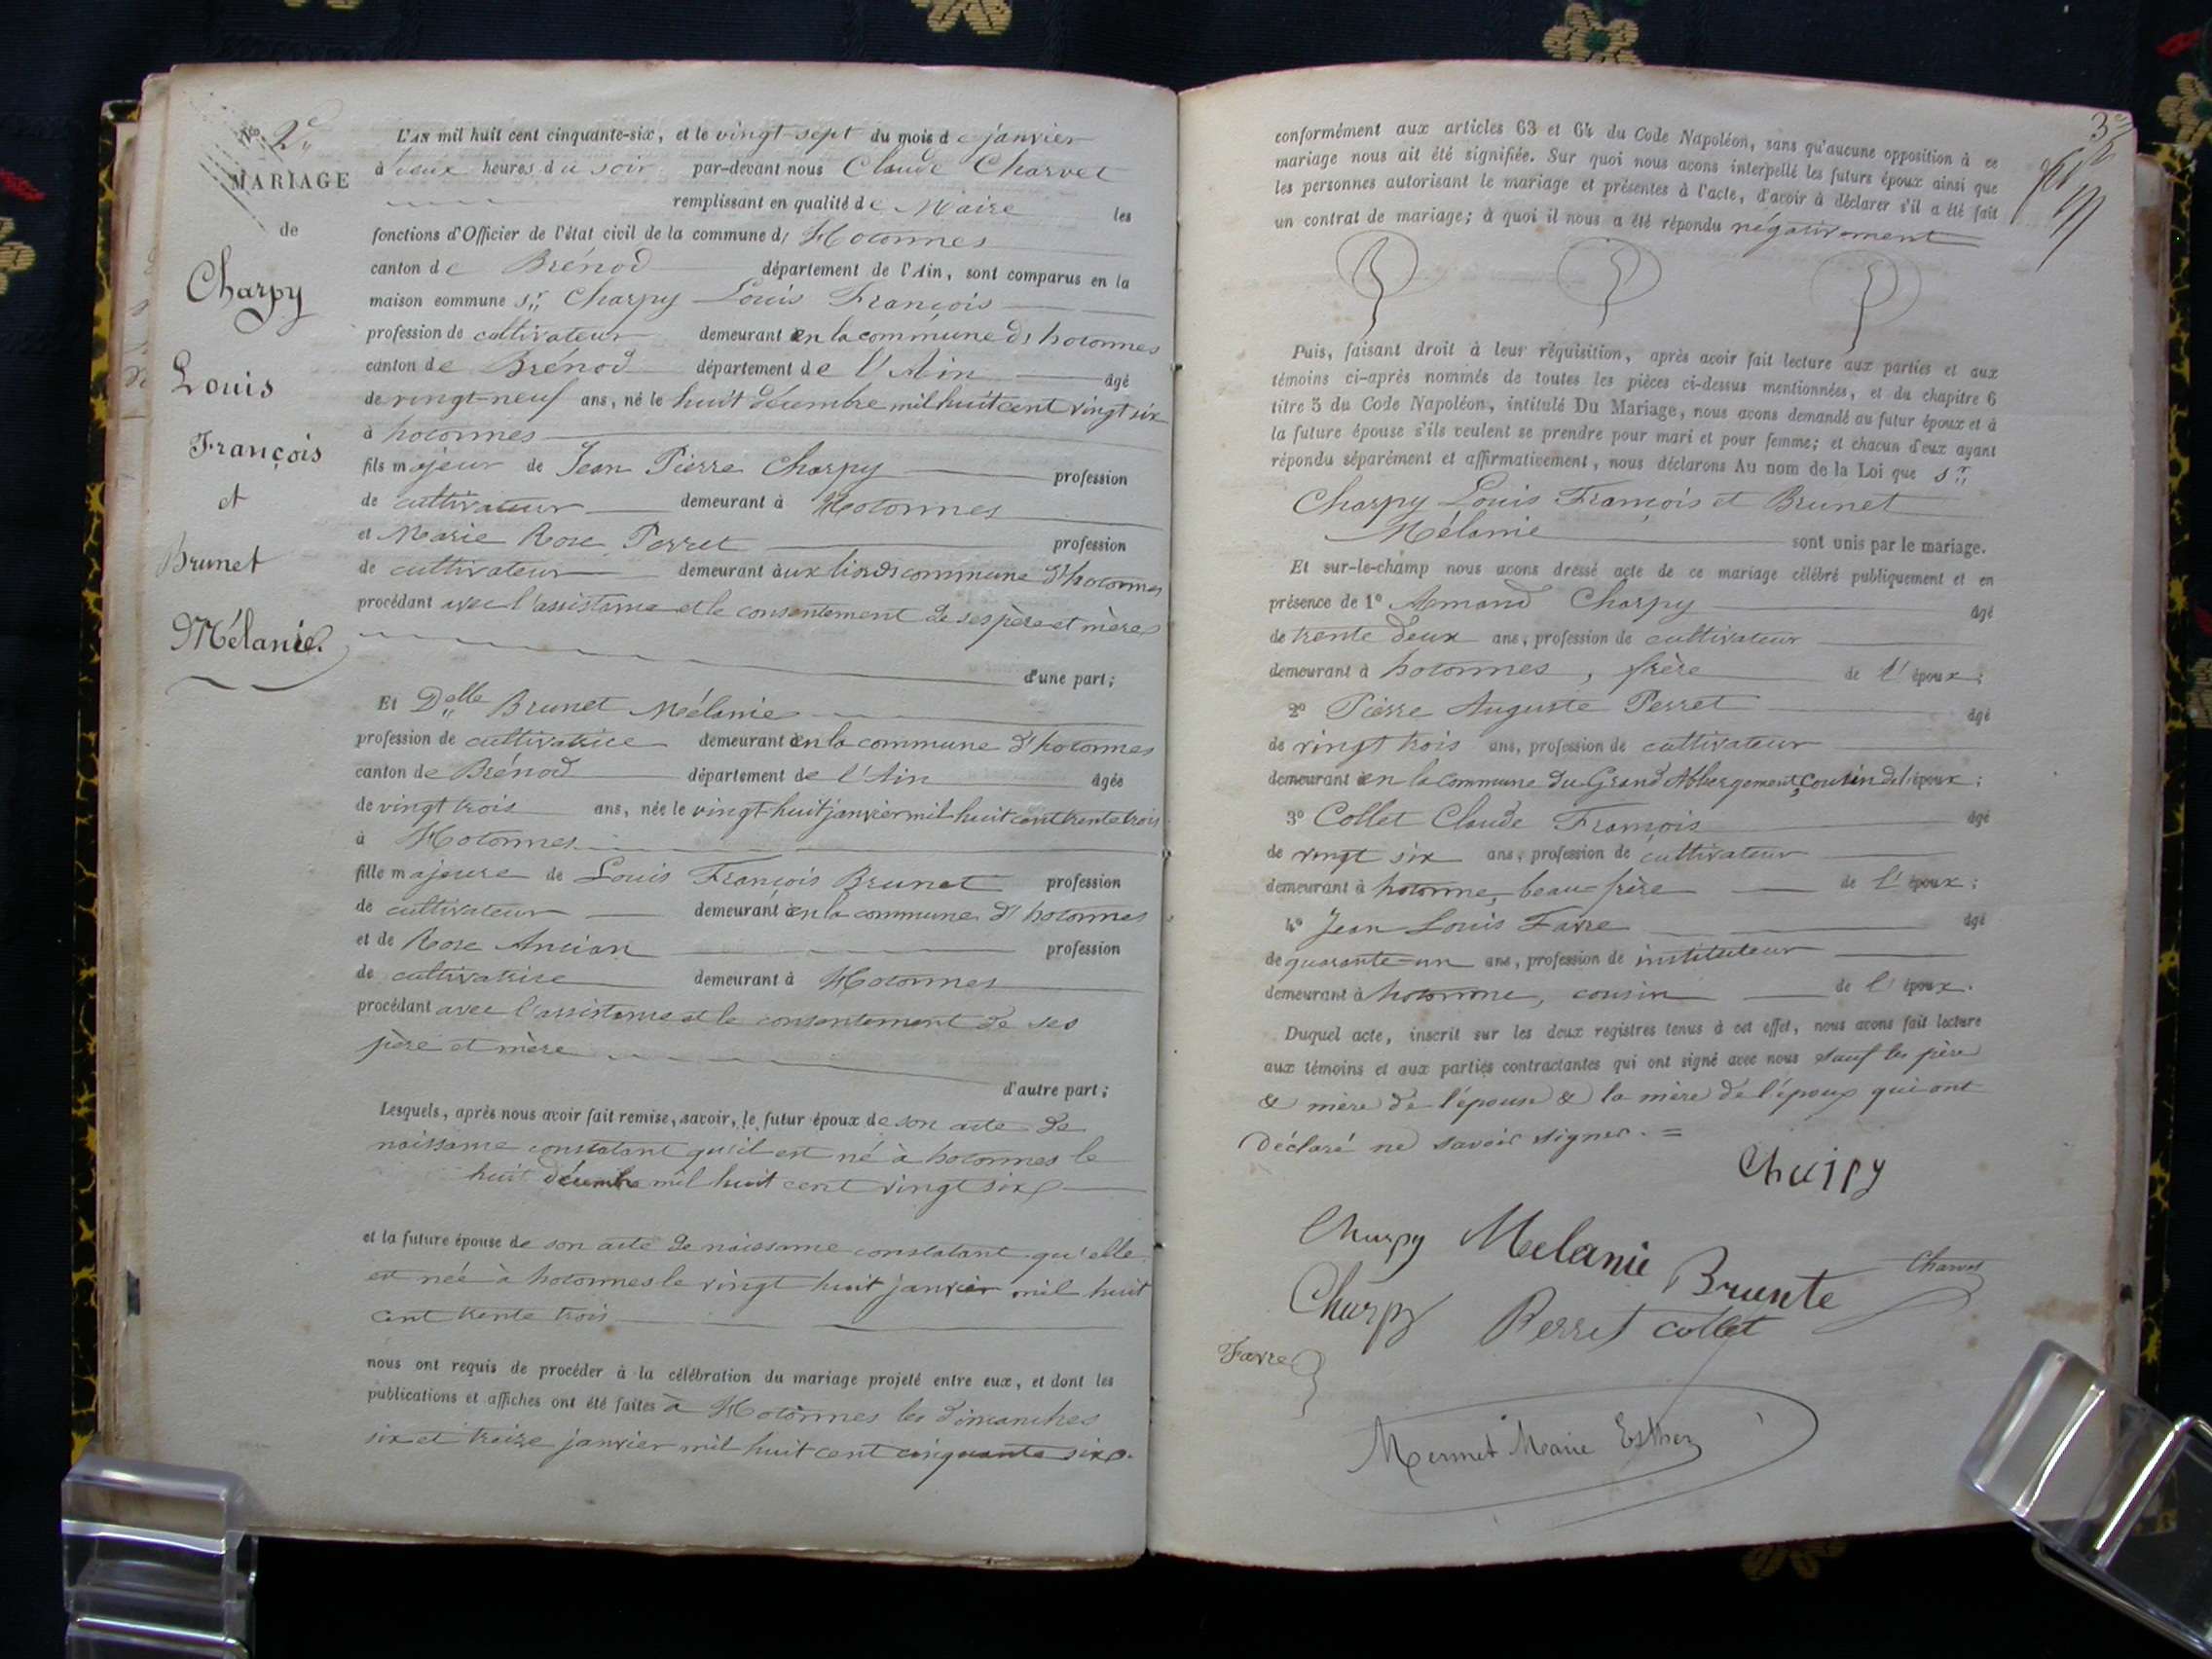 No 2e
MARIAGE
de
Charpy
Louis
François
et
Brunet
Mélanie.
L'AN mil huit cent cinquante-six, et le vingt sept du mois de janvier
à deux heures du soir par-devant nous Claude Charvet
remplissant en qualité de Maire les
fonctions d'Officier de l'état civil de la commune d' Hotonnes
canton de Brénod département de l'Ain, sont comparus en la
maison commune Sr Charpy Louis François
profession de cultivateur demeurant en la commune d' hotonnes
canton de Brénod département de l'Ain âgé
de vingt-neuf ans, né le huit décembre mil huit cent vingt six
à hotonnes
fils majeur de Jean Pierre Charpy profession
de cultivateur demeurant à Hotonnes
et Marie Rose Perret profession
de cultivateur demeurant aux commune d'hotonnes
procédant avec l'assistance et le consentement de ses père et mère
d'une part;
Et Delle Brunet Mélanie
profession de cultivatrice demeurant en la commune d'hotonnes
canton de Brénod département de l'Ain âgée
de vingt trois ans, née le vingt-huit janvier mil huit cent trente trois
à Hotonnes
fille majeure de Louis François Brunet profession
de cultivateur demeurant en la commune d'hotonnes
et de Rose Ancian profession
de cultivatrice demeurant à Hotonnes
procédant avec l'assistance et le consentement de ses
père et mère
d'autre part;
Lesquels, après nous avoir fait remise, savoir, le futur époux de son acte de
naissance constatant qu'il est né à hotonnes le
huit décembre mil huit cent vingt six
et la future épouse de son acte de naissance constatant qu'elle
est née à hotonnes le vingt huit janvier mil huit
cent trente trois
nous ont requis de procéder à la célébration du mariage projeté entre eux, et dont les
publications et affiches ont été faites à Hotonnes les dimanches
six et treize janvier mil huit cent cinquante six.
3e
conformément aux articles 63 et 64 du Code Napoléon, sans qu'aucune opposition à ce
mariage nous ait été signifiée. Sur quoi nous avons interpellé les futurs époux ainsi que
les personnes autorisant le mariage et présentes à l'acte, d'avoir à déclarer s'il a été fait
un contrat de mariage; à quoi il nous a été répondu négativement
Puis, faisant droit à leur réquisition, après avoir fait lecture aux parties et aux
témoins ci-après nommés de toutes les pièces ci-dessus mentionnées, et du chapitre 6
titre 5 du Code Napoléon, intitulé Du Mariage, nous avons demandé au futur époux et à
la future épouse s'ils veulent se prendre pour mari et pour femme; et chacun d'eux ayant
répondu séparément et affirmativement, nous déclarons Au nom de la Loi que Sr
Charpy Louis François et Brunet
Mélanie sont unis par le mariage.
Et sur-le-champ nous avons dressé acte de ce mariage célébré publiquement et en
présence de 1º Armand Charpy âgé
de trente deux ans, profession de cultivateur
demeurant à hotonnes, frère de l'époux;
2º Pierre Auguste Perret âgé
de vingt trois ans, profession de cultivateur
demeurant en la commune du Grand Abbergement, cousin de l'époux;
3º Collet Claude François âgé
de vingt six ans, profession de cultivateur
demeurant à hotonne, beau-frère de l'époux;
4º Jean Louis Favre âgé
de quarante-un ans, profession de instituteur
demeurant à hotonne, cousin de l'époux.
Duquel acte, inscrit sur les deux registres tenus à cet effet, nous avons fait lecture
aux témoins et aux parties contractantes qui ont signé avec nous sauf les père
& mère de l'épouse & la mère de l'époux qui ont
déclaré ne savoir signer. =
Charpy
Charpy Melanie Brunte Charvet
Charpy Perret Collet
Favre
Mermet Marie Esther